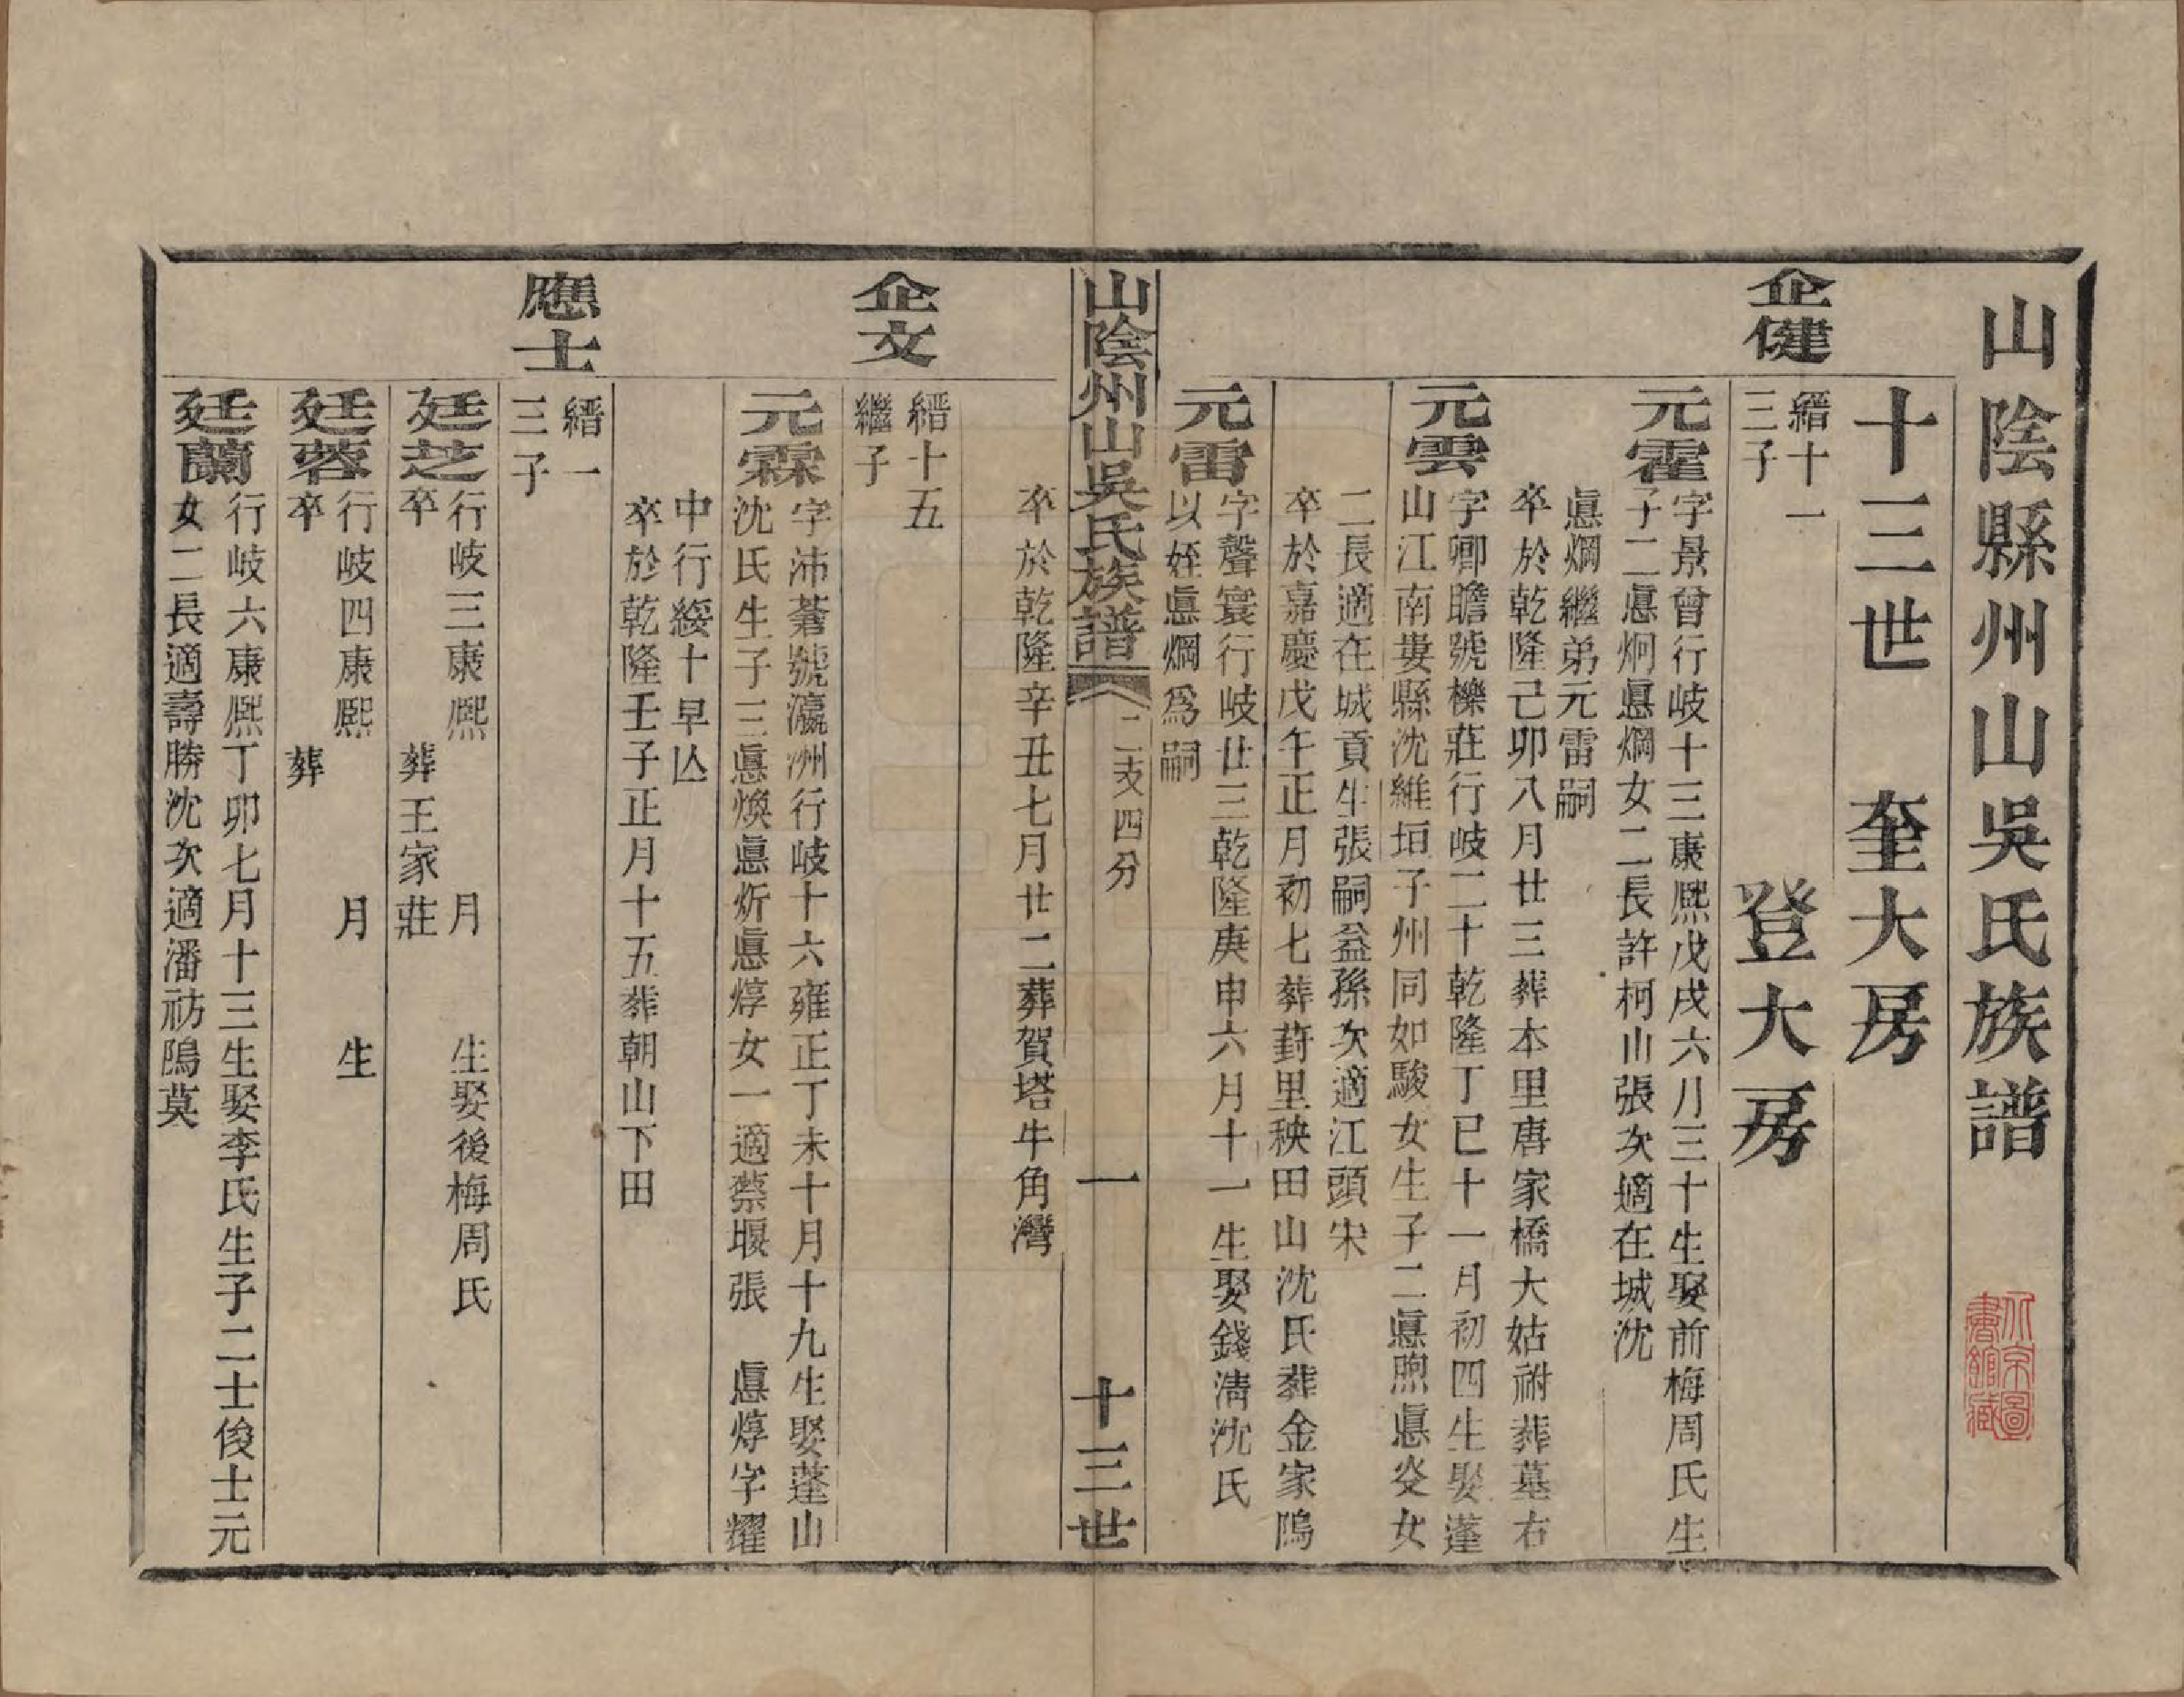 山陰縣州山吳氏族譜
十三世　奎大房
登大房
企健
縉十一
三子
元霍
字景曾行岐十三康熙戊戌六月三十生娶前梅周氏生
子二慐炯慐烱女二長許柯山張次適在城沈
慐烱繼弟元雷嗣
卒於乾隆己卯八月廿三葬本里唐家橋大姑祔葬墓右
元雲
字卿瞻號櫟莊行岐二十乾隆丁巳十一月初四生娶蓬
山江南婁縣沈維垣子州同如駿女生子二慐煦慐炎女
二長適在城貢生張嗣益孫次適江頭宋
卒於嘉慶戊午正月初七葬葑里秧田山沈氏葬金家隝
元雷
字聲寰行岐廿三乾隆庚申六月十一生娶錢清沈氏
以姪慐烱爲嗣
山陰州山吳氏族譜
二支四分
一
十三世
卒於乾隆辛丑七月廿二葬賀塔牛角灣
企文
縉十五
繼子
元霖
字沛蒼號瀛洲行岐十六雍正丁未十月十九生娶蓬山
沈氏生子三慐煥慐炘慐焞女一適蔡堰張　慐焞字耀
中行綏十早亾
卒於乾隆壬子正月十五葬朝山下田
應士
縉一
三子
廷芝
行岐三康熙　月　生娶後梅周氏
卒　葬王家莊
廷蓉
行岐四康熙　月　生
卒　葬
廷蘭
行岐六康熙丁卯七月十三生娶李氏生子二士俊士元
女二長適壽勝沈次適潘祊隝莫